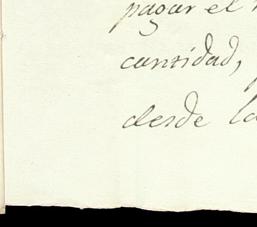 pagar el
cantidad,
desde la